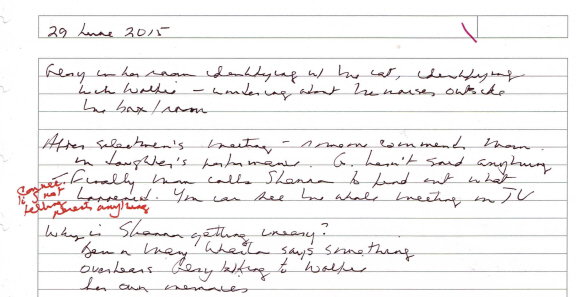 29 June 2015
Gery in her room identifying w/ the cat, identifying
with Walter – wondering about the noises outside
the box/room
After selectmen's meeting – someone comments Mom
on daughter's performance. G. hasn't said anything
Finally Mom calls Shanna to find out what
happened. You can see the whole meeting on TV
connect.
to G not
telling
parents anything
Why is Shanna getting uneasy?
says something
overhears Gery talking to Walter
her own memories